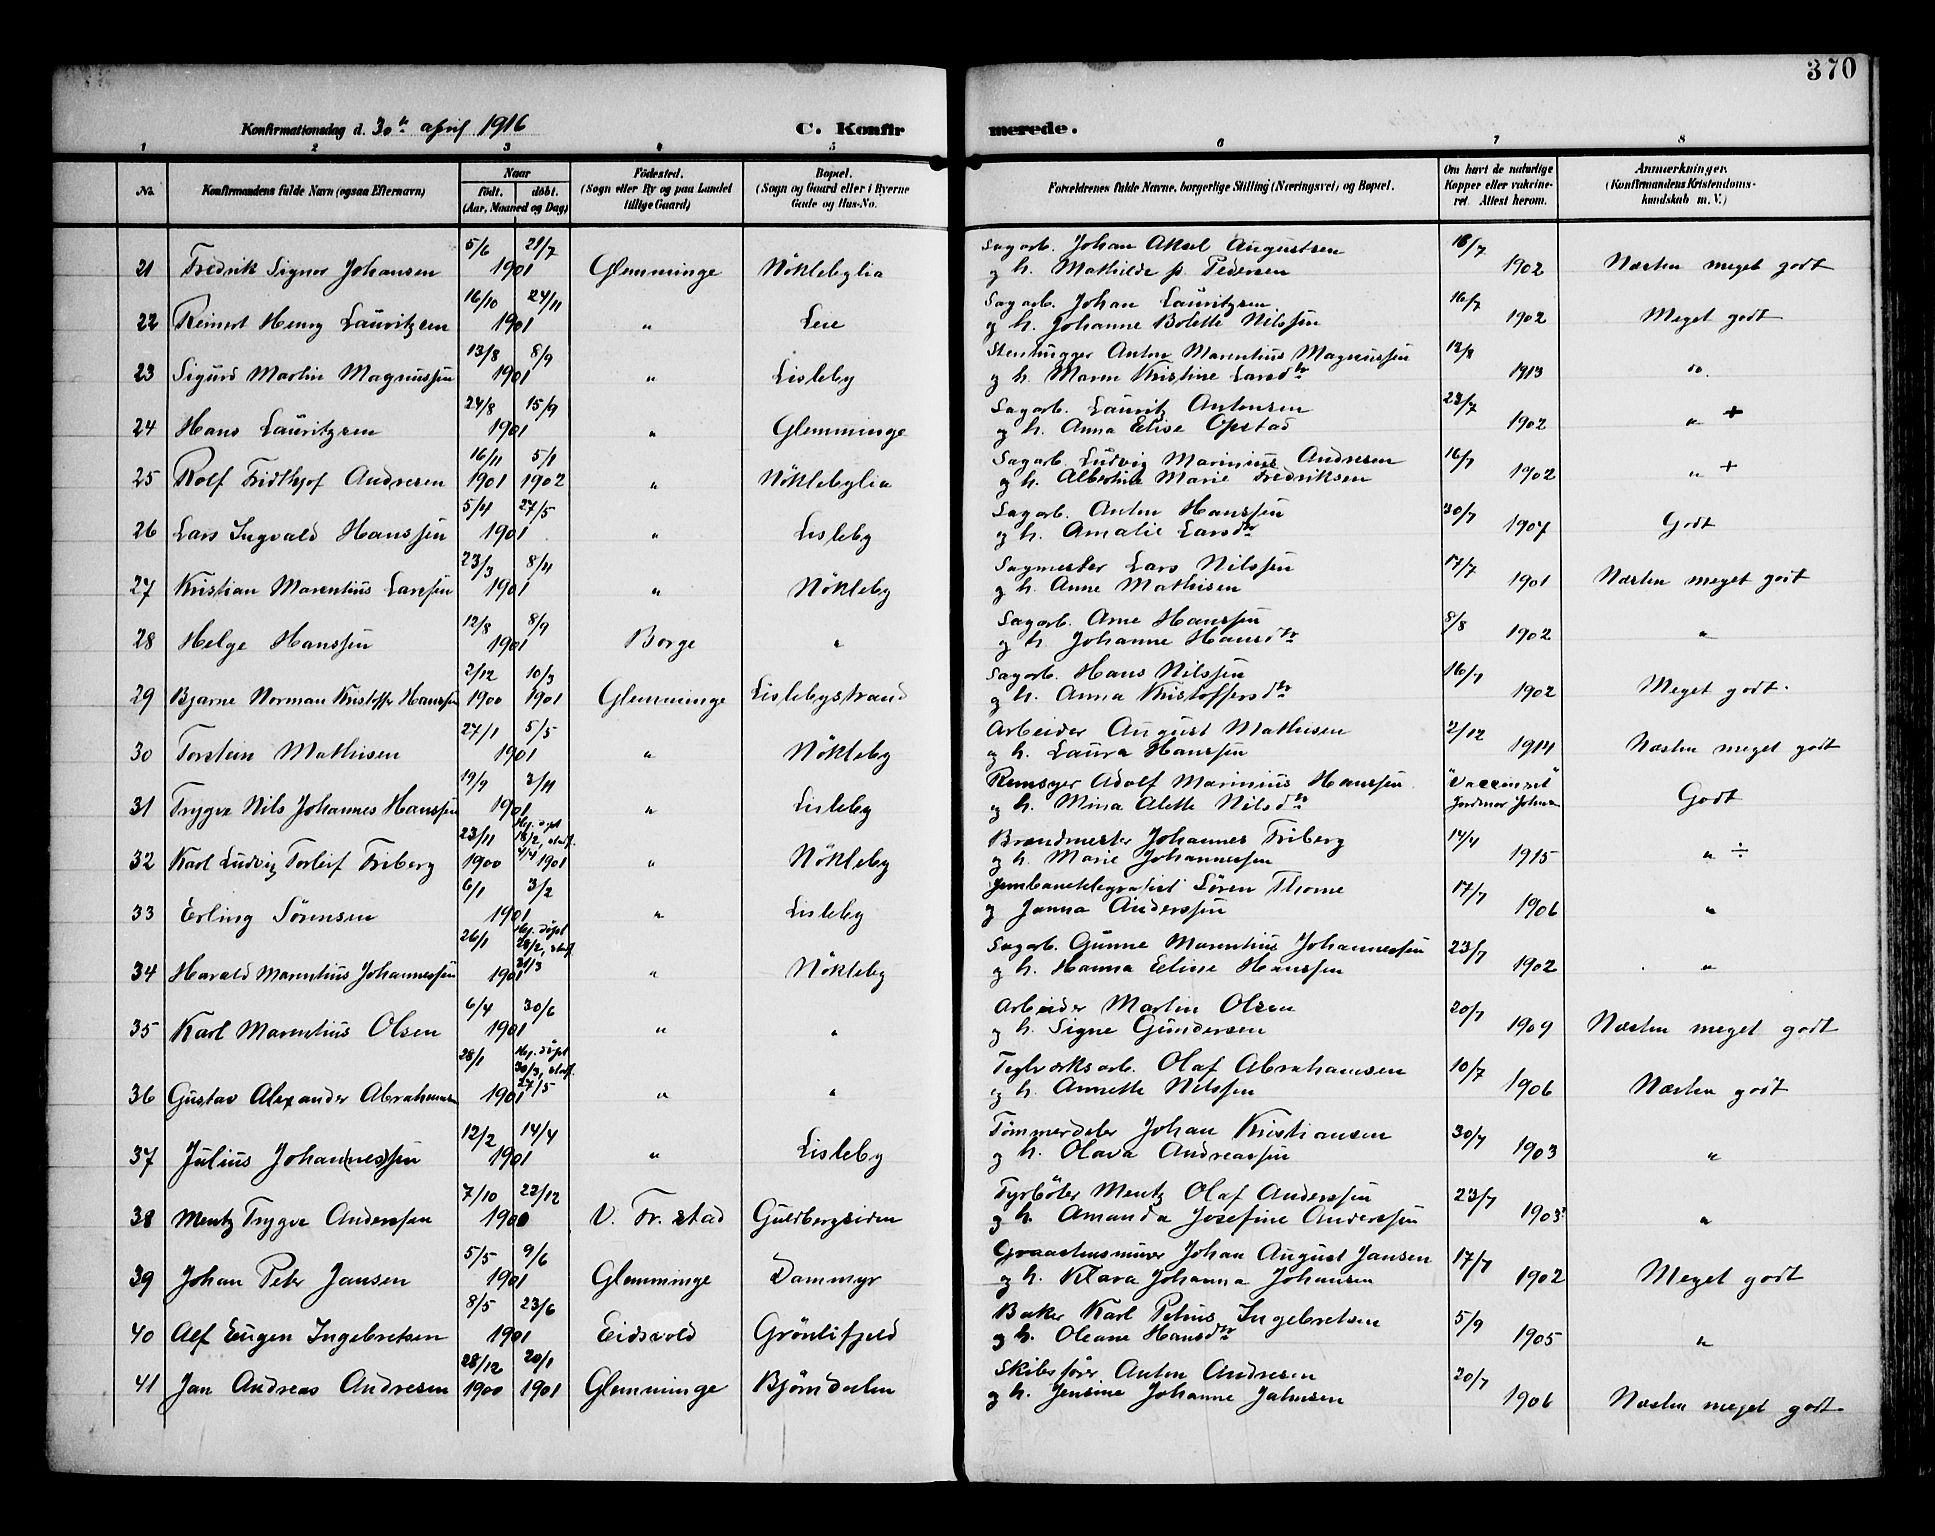 370
Konfirmationsdag d. 30te april 1916 C. Konfirmerede.
1 2 3 4 5 6 7 8
No. Konfirmandens fulde Navn (ogsaa Efternavn) Naar født. døbt. (Aar, Maaned og Dag) Fødested. (Sogn eller By og paa Landet tillige Gaard) Bopæl. (Sogn og Gaard eller i Byerne Gade og Hus-No. Forældrenes fulde Navne, borgerlige Stilling (Næringsvei) og Bopæl. Om havt de naturlige Kopper eller vakcineret. Attest herom. Anmærkninger. (Konfirmandens Kristendomskundskab m. V.)
21 Fredrik Signor Johansen 5/6 21/7 1901 Glemminge Nöklebylia Sagarb. Johan Aksel Augustsen og h. Mathilde f. Pedersen 18/7 1902 Næsten meget godt
22 Reinert Henry Lauritzen 16/10 24/11 1901 " Leie Sagarb. Johan Lauritzen og h. Johanne Bolette Nilssen 16/7 1902 Meget godt
23 Sigurd Martin Magnussen 13/8 8/9 1901 " Lisleby Stenhugger Anton Marentius Magnussen og h. Maren Kristine Larsdtr 12/8 1913 do.
24 Hans Lauritzen 24/8 15/9 1901 " Glemminge Sagarb. Lauritz Antonsen og h. Anna Elise Opstad 23/7 1902 " +
25 Rolf Fridthjof Andresen 16/11 1901 5/1 1902 " Nöklebylia Sagarb. Ludvig Marinius Andresen og h. Albertine Marie Fredriksen 16/7 1902 " +
26 Lars Ingvald Hanssen 5/4 27/5 1901 " Lisleby Sagarb. Anton Hanssen og h. Amalie Larsdtr 30/7 1907 Godt
27 Kristian Marentius Larssen 23/3 8/4 1901 " Nökleby Sagmester Lars Nilssen og h. Anne Mathisen 17/7 1901 Næsten meget godt
28 Helge Hanssen 12/8 8/9 1901 Borge " Sagarb. Arne Hanssen og h. Johanne Hansdtr 8/8 1902 "
29 Bjarne Norman Kristoffer Hanssen 2/12 1900 10/3 1901 Glemminge Lislebystrand Sagarb. Hans Nilssen og h. Anna Kristoffersdtr 16/7 1902 Meget godt.
30 Torstein Mathisen 27/1 5/5 1901 " Nökleby Arbeider August Mathisen og h. Laura Hanssen 2/12 1914 Næsten meget godt
31 Trygve Nils Johannes Hanssen 19/9 3/11 1901 " Lisleby Remsyer Adolf Marinius Hanssen og h. Mina Alette Nilsdtr "Vaccineret" Godt
32 Karl Ludvig Torleif Friberg 23/11 1900 Hj. döpt 18/2, stadf. 4/4 1901 " Nökleby Brandmester Johannes Friberg og h. Marie Johannessen 14/4 1915 " ÷
33 Erling Sörensen 6/1 3/2 1901 " Lisleby Jernbanetelegrafist Sören Thorne og Janna Anderssen 17/7 1906 "
34 Harald Marentius Johannessen 26/1 1901 Hj. döpt 28/2, stadf. 31/3 " Nökleby Sagarb. Gunne Marentius Johannessen og h. Hanna Elise Hanssen 23/7 1902 "
35 Karl Marentius Olsen 6/4 30/6 1901 " " Arbeider Martin Olsen og h. Signe Gundersen 20/7 1909 Næsten meget godt
36 Gustav Alexander Abrahamsen 28/1 1901 Hj. döpt 30/3, stadf. 27/5 " " Teglverksarb. Olaf Abrahamsen og h. Annette Nilssen 10/7 1906 Næsten godt
37 Julius Johan(nes)sen 12/2 14/4 1901 " Lisleby Tömmerdeler Johan Kristiansen og h. Olava Andreassen 30/7 1903 "
38 Mentz Trygve Anderssen 7/10 22/12 1900 V. Fr.stad Guldbergsiden Fyrböter Mentz Olaf Anderssen og h. Amanda Josefine Anderssen 23/7 1903 "
39 Johan Peter Jansen 5/5 9/6 1901 Glemminge Dammyr Graastensmurer Johan August Jansen og h. Klara Johanna Johansen 17/7 1902 Meget godt
40 Alf Eugen Ingebretsen 8/5 23/6 1901 Eidsvold Grönlifjeld Baker Karl Petrus Ingebretsen og h. Oleane Hansdtr 5/9 1905 "
41 Jan Andreas Andresen 28/12 1900 20/1 1901 Glemminge Björndalen Skibsförer Anton Andresen og h. Jensine Johanne Jahnsen 20/7 1906 Næsten meget godt.